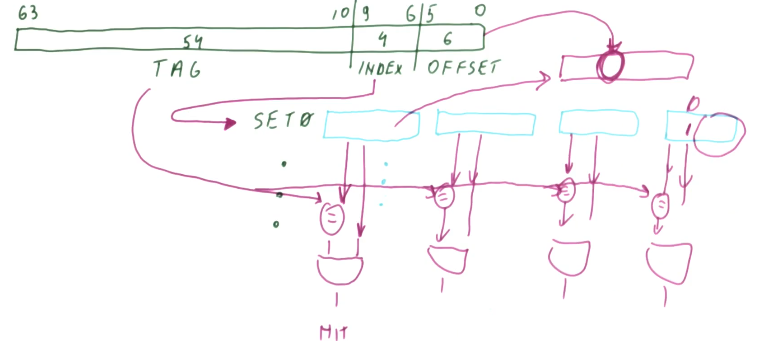 63 10 9 6 5 0
54 4 6
TAG INDEX OFFSET
0
SET0 1
= = = =
HIT